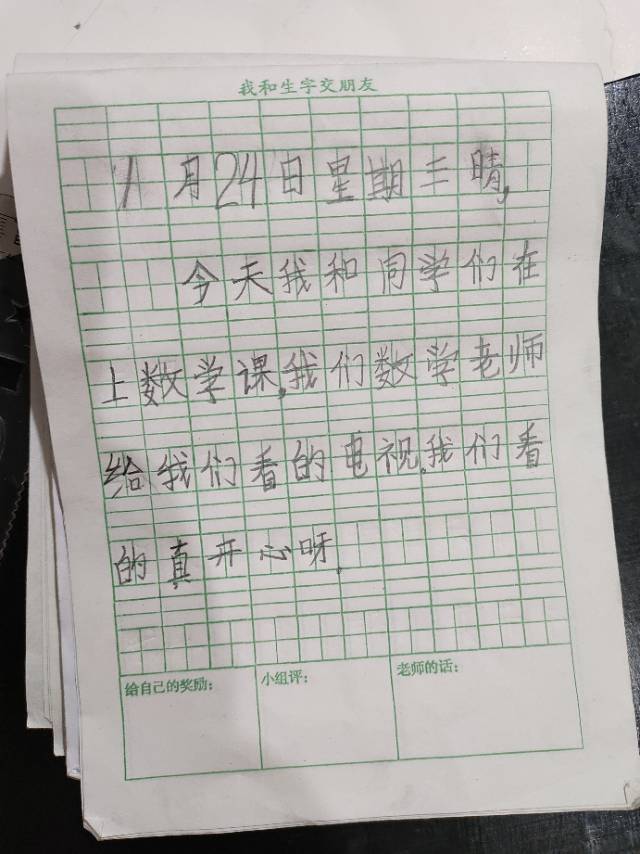 我和生字交朋友
1月24日星期三晴,
今天我和同学们在
上数学课,我们数学老师
给我们看的电视.我们看
的真开心呀.
给自己的奖励:
小组评:
老师的话: